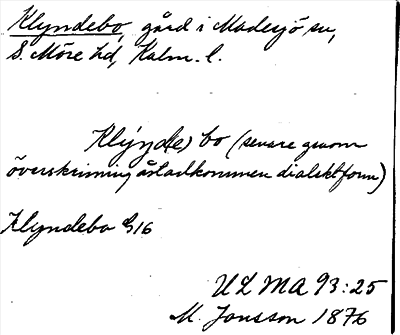 Klyndebo, gård i Madesjö sn,
S. Möre hd, Kalm. l.
Klýn̂d(e)bo (senare genom
överskrivning åstadkommen dialektform)
Klyndebo G16
ULMA 93:25
M. Jonsson 1876